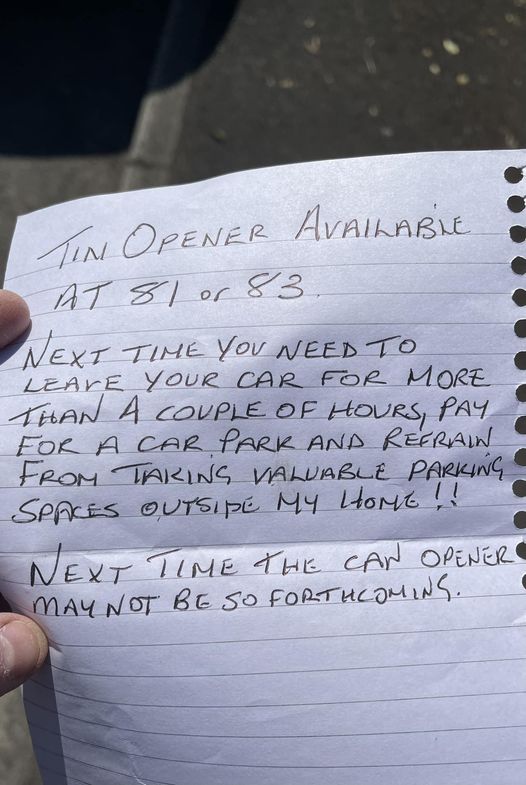 TIN OPENER AVAILABLE
AT 81 or 83.
NEXT TIME YOU NEED TO
LEAVE YOUR CAR FOR MORE
THAN A COUPLE OF HOURS, PAY
FOR A CAR PARK AND REFRAIN
FROM TAKING VALUABLE PARKING
SPACES OUTSIDE MY HOME!!
NEXT TIME THE CAN OPENER
MAY NOT BE SO FORTHCOMING.